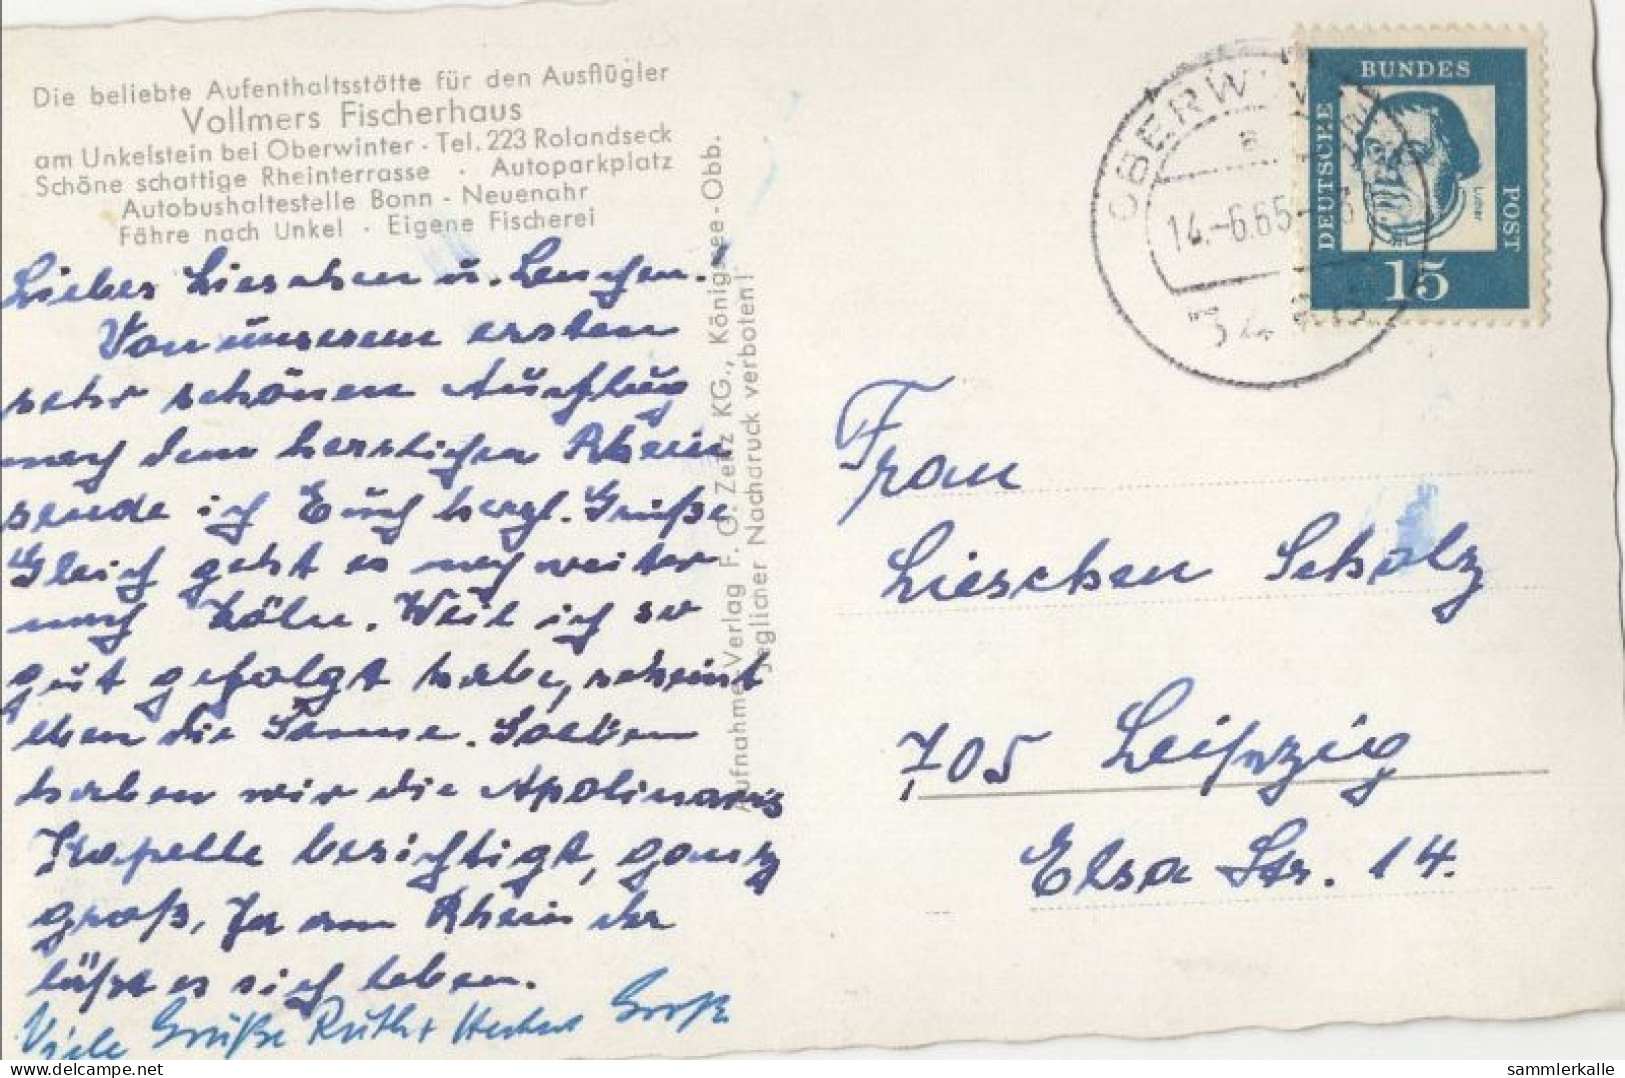 Die beliebte Aufenthaltsstätte für den Ausflügler
Vollmers Fischerhaus
am Unkelstein bei Oberwinter - Tel. 223 Rolandseck
Schöne schattige Rheinterrasse · Autoparkplatz
Autobushaltestelle Bonn - Neuenahr
Fähre nach Unkel · Eigene Fischerei
Liebes Lieschen u. Lenchen.
Von unserem ersten
sehr schönen Ausflug
nach dem herrlichen Rhein
sende ich Euch herzl. Grüße
Gleich geht es noch weiter
nach Köln. Weil ich so
gut gefolgt habe, scheint
eben die Sonne. Soeben
haben wir die Apolinaris
Kapelle besichtigt, ganz
groß, Ja am Rhein da
läßt es sich leben.
Viele Grüße Ruth + Herbert Große
Aufnahme, Verlag F. G. Zeitz KG., Königssee-Obb.
Jeglicher Nachdruck verboten!
OBERWINTER
a
14.-6.65-
DEUTSCHE
BUNDES
POST
Luther
15
Frau
Lieschen Scholz
705 Leipzig
Elsa Str. 14.
sammlerkalle